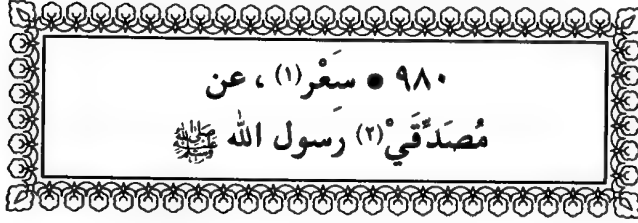 ٩٨٠ • سَعْر(١) ، عن
مُصَدِّقَيْ(٢) رسول الله ﷺ